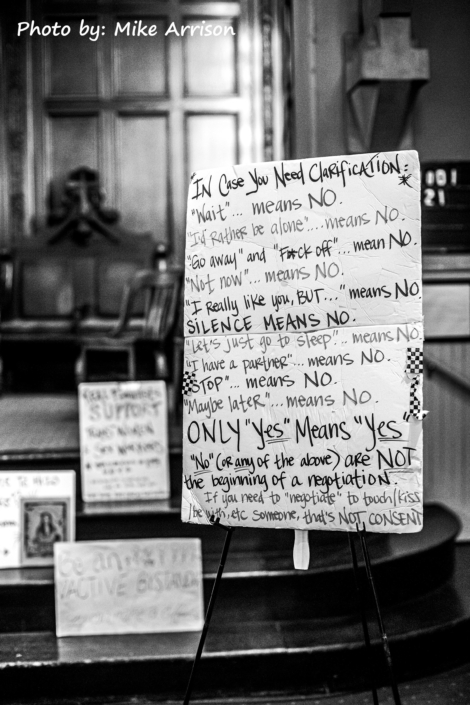 Photo by: Mike Arrison
"IN CASE YOU NEED CLARIFICATION:*
"Wait"... means NO.
"I'd RATHER be alone"....means NO.
"Go away" and "F*ck off"... mean NO.
"Not now"... means NO.
"I REALLY like you, BUT..." means NO.
SILENCE MEANS NO.
"Let's just go to sleep".. means NO.
"I have a partner"... means NO.
"STOP"... means NO.
"Maybe lateR"... means NO.
ONLY "Yes" Means "Yes"
"No" (or any of the above) are NOT
the beginning of a negotiation.
If you need to "negotiate" to touch/kiss
/be with, etc someone, that's NOT CONSENT
101
21
SUPPORT